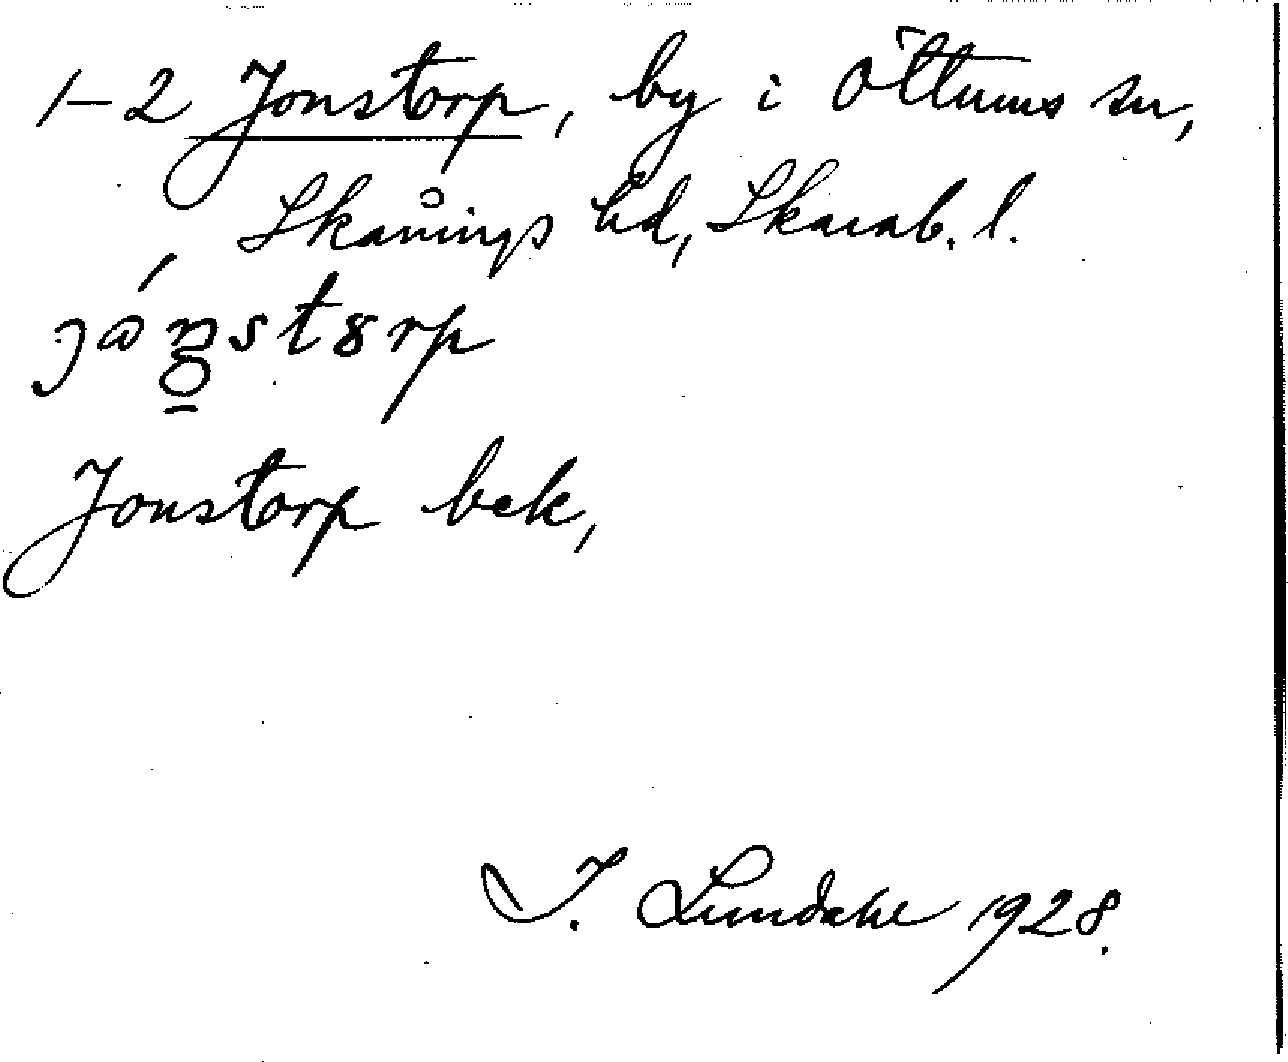 1–2 Jonstorp, by i Öttums sn,
Skånings hd, Skarab. l.
Jonstorp bek,
I. Lundahl 1928.